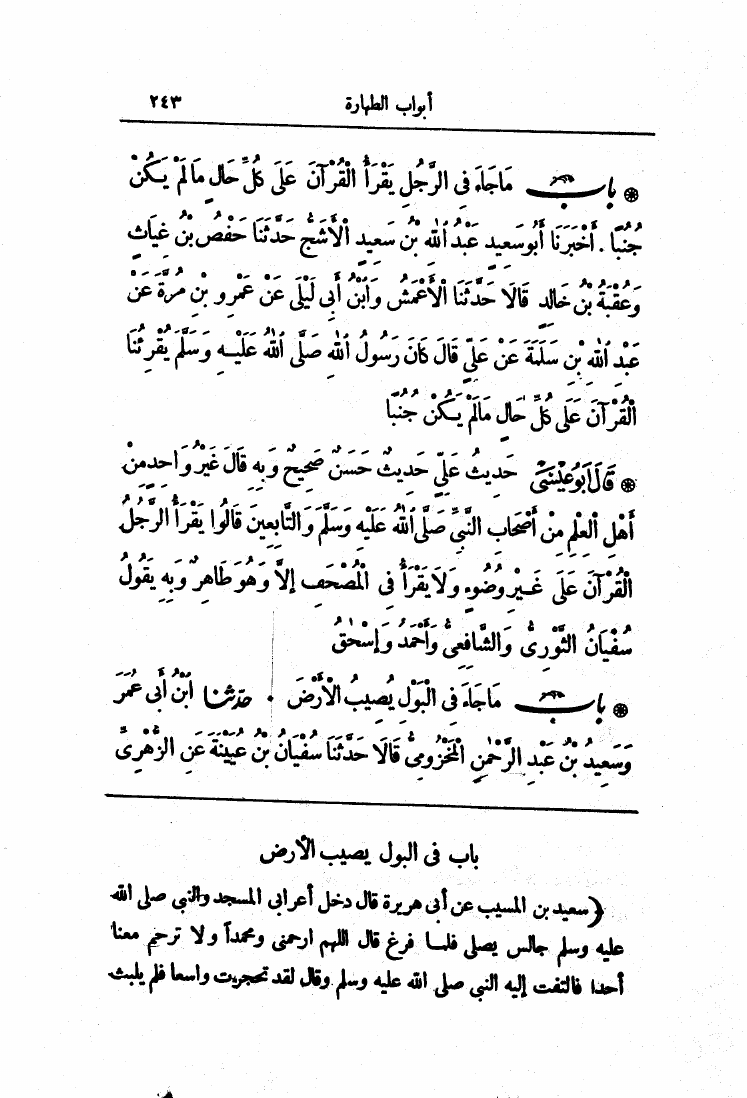 أبواب الطهارة ٢٤٣
باب مَاجَاءَ فِى الرَّجُلِ يَقْرَأُ الْقُرْآنَ عَلَى كُلِّ حَالٍ مَالَمْ يَكُنْ
جُنُبًا . أَخْبَرَنَا أَبُوسَعِيدٍ عَبْدُ اللهِ بْنُ سَعِيدٍ الْأَشَجُّ حَدَّثَنَا حَفْصُ بْنُ غِيَاثٍ
وَعُقْبَةُ بْنُ خَالِدٍ قَالَا حَدَّثَنَا الْأَعْمَشُ وَابْنُ أَبِى لَيْلَى عَنْ عَمْرِو بْنِ مُرَّةَ عَنْ
عَبْدِ اللهِ بْنِ سَلَمَةَ عَنْ عَلِىٍّ قَالَ كَانَ رَسُولُ اللهِ صَلَّى اللهُ عَلَيْهِ وَسَلَّمَ يُقْرِئُنَا
الْقُرْآنَ عَلَى كُلِّ حَالٍ مَالَمْ يَكُنْ جُنُبًا
قَالَ أَبُو عِيْسَى حَدِيثُ عَلِىٍّ حَدِيثٌ حَسَنٌ صَحِيحٌ وَبِهِ قَالَ غَيْرُ وَاحِدٍ مِنْ
أَهْلِ الْعِلْمِ مِنْ أَصْحَابِ النَّبِىِّ صَلَّى اللهُ عَلَيْهِ وَسَلَّمَ وَالتَّابِعِينَ قَالُوا يَقْرَأُ الرَّجُلُ
الْقُرْآنَ عَلَى غَيْرِ وُضُوءٍ وَلَا يَقْرَأُ فِى الْمُصْحَفِ إِلَّا وَهُوَ طَاهِرٌ وَبِهِ يَقُولُ
سُفْيَانُ الثَّوْرِىُّ وَالشَّافِعِىُّ وَأَحْمَدُ وَإِسْحٰقُ
باب مَاجَاءَ فِى الْبَوْلِ يُصِيبُ الْأَرْضَ . حدثنا ابْنُ أَبِى عُمَرَ
وَسَعِيدُ بْنُ عَبْدِ الرَّحْمٰنِ الْمَخْزُومِىُّ قَالَا حَدَّثَنَا سُفْيَانُ بْنُ عُيَيْنَةَ عَنِ الزُّهْرِىِّ
باب فى البول يصيب الأرض
(سعيد بن المسيب عن أبى هريرة قال دخل أعرابى المسجد والنبى صلى الله
عليه وسلم جالس يصلى فلما فرغ قال اللهم ارحمنى ومحمداً ولا ترحم معنا
أحدا فالتفت إليه النبى صلى الله عليه وسلم وقال لقد تحجرت واسعا فلم يلبث